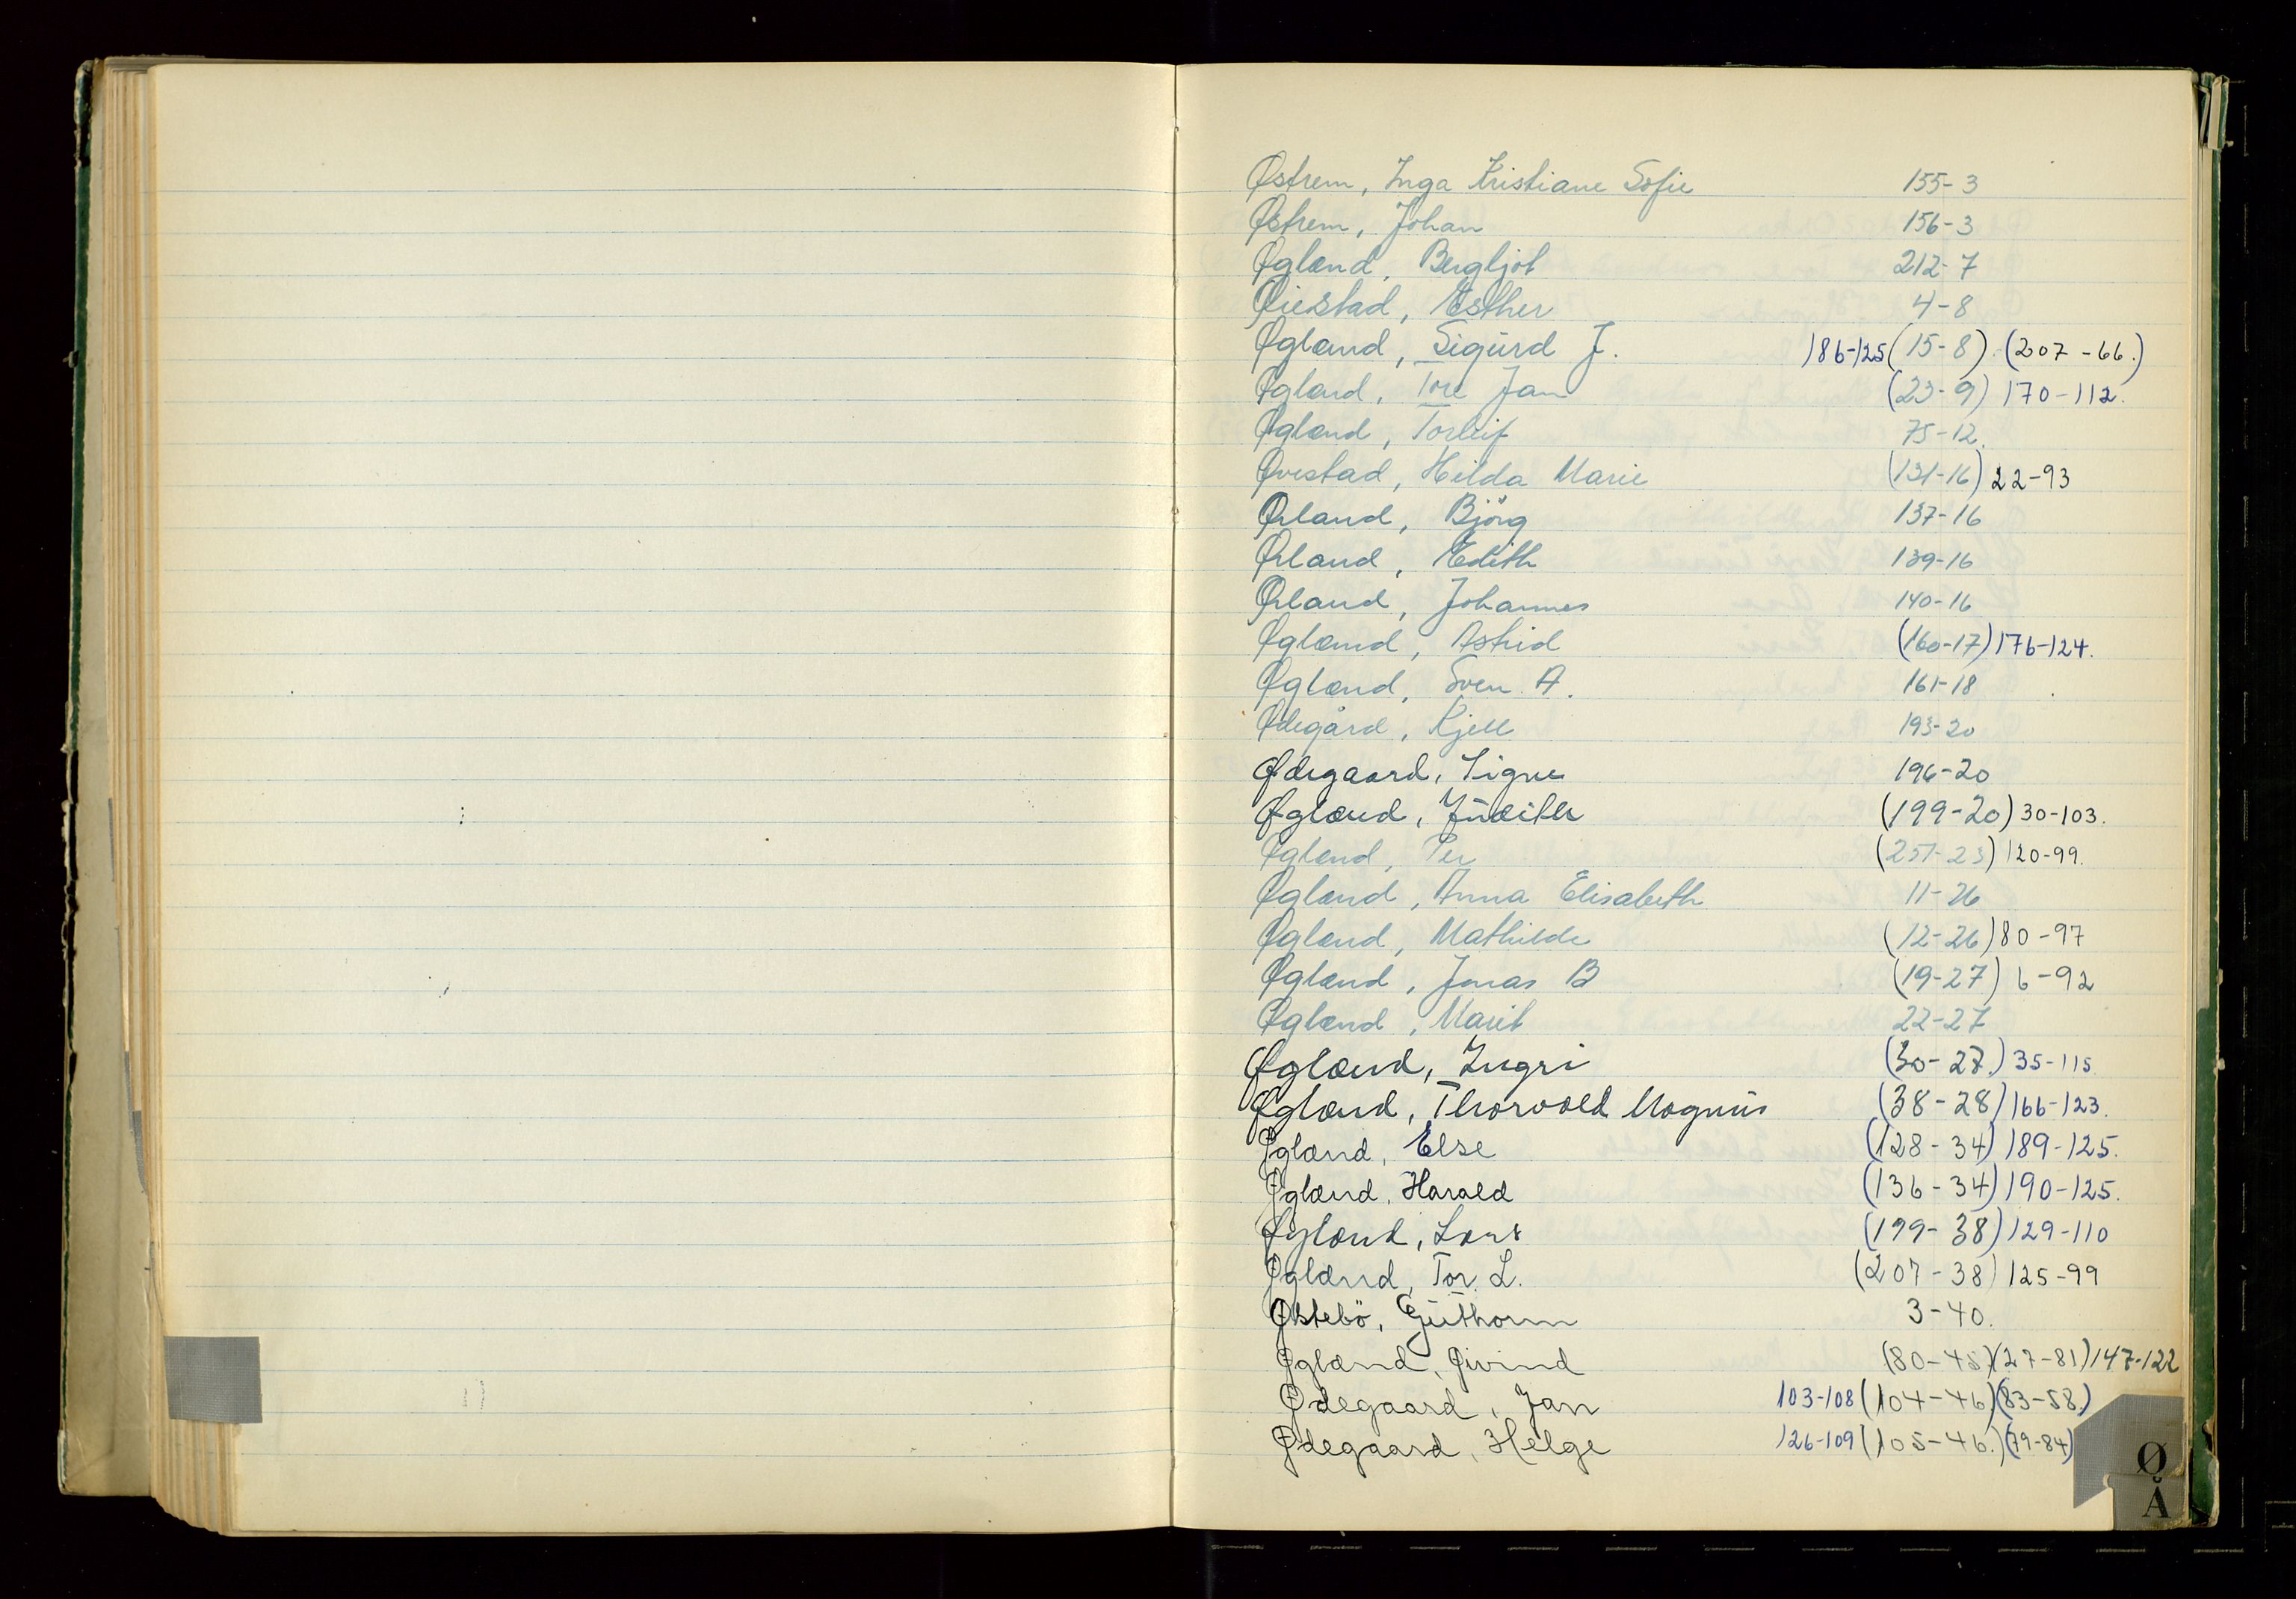 Østrem, Inga Kristiane Sofie 155-3
Østrem, Johan 156-3
Øgland, Bergljot 212-7
Øiestad, Esther 4-8
Øglænd, Sigurd J. 186-125 (15-8) (207-66.)
Øglænd, Tore Jan (23-9) 170-112.
Øglænd, Torleif 75-12.
Øvestad, Hilda Marie (131-16) 22-93
Ørland, Björg 137-16
Ørland, Edith 139-16
Ørland, Johannes 140-16
Øglænd, Astrid (160-17) 176-124.
Øglænd, Sven A. 161-18
Ødegård, Kjell 193-20
Ødegaard, Signe 196-20
Øglænd, Judith (199-20) 30-103.
Øglænd, Per (251-23) 120-99.
Øglænd, Anna Elisabeth 11-26
Øglænd, Mathilde (12-26) 80-97
Øglænd, Jonas B (19-27) 6-92
Øglænd, Marit 22-27
Øglænd, Ingri (30-27.) 35-115
Øglænd, Thorvald Magnus (38-28) 166-123.
Øglænd, Else (128-34) 189-125.
Øglænd, Harald (136-34) 190-125.
Øglænd, Lars (199-38) 129-110
Øglænd, Tor L. (207-38) 125-99
Østebö, Guthorm 3-40.
Øglænd, Øivind (80-45) (27-81) 147-122
Ødegaard, Jan 103-108 (104-46) (83-58.)
Ødegaard, Helge 126-109 (105-46.) (79-84)
Ø
Å